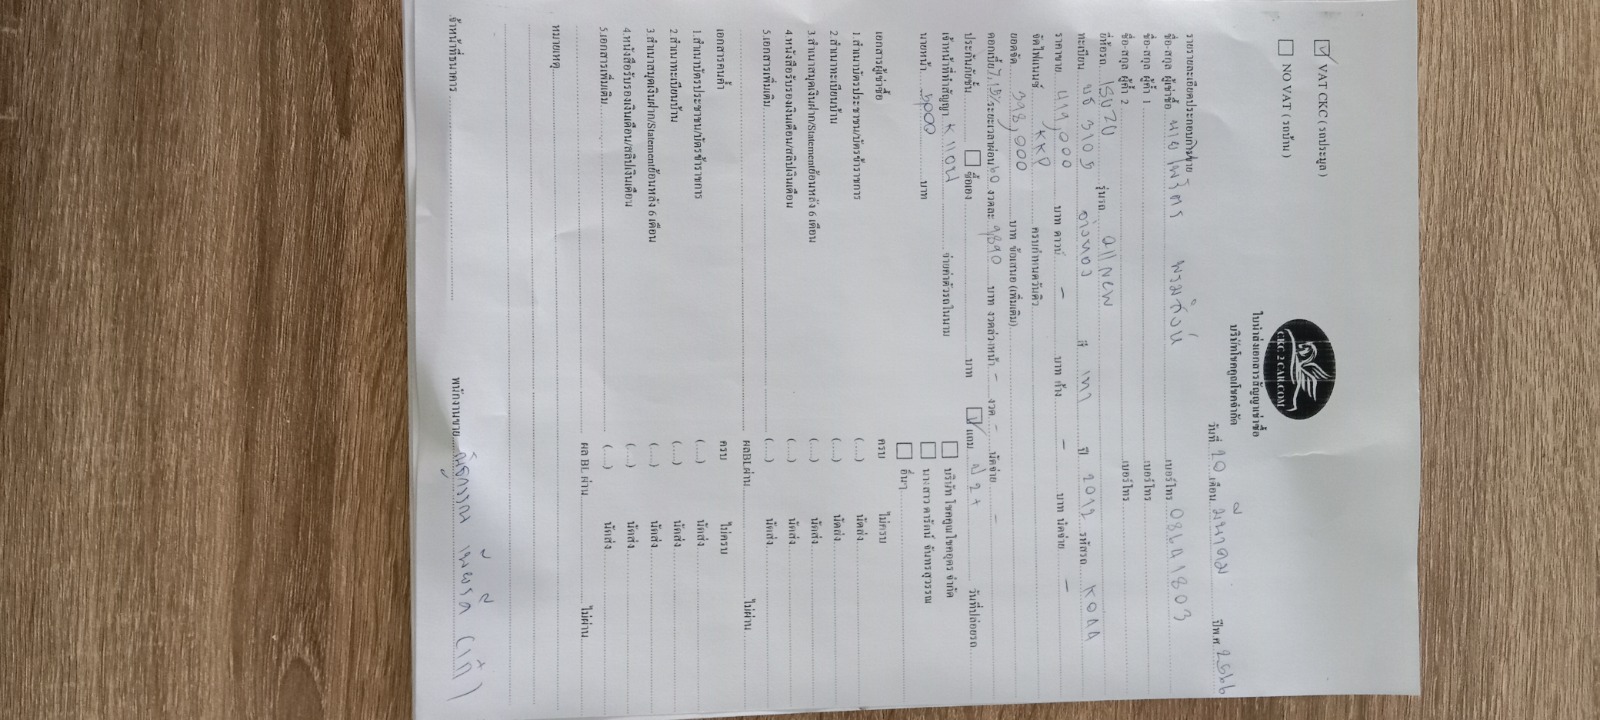 VAT CKC ( รถประมูล )
NO VAT ( รถบ้าน )
CKC 2 CAR.COM
ใบนำส่งเอกสารสัญญาเช่าซื้อ
บริษัทโชคคูณโชคจำกัด
วันที่ 20 เดือน มีนาคม ปีพ.ศ. 2566
รายรายละเอียดประกอบการขาย
ชื่อ-สกุล ผู้เช่าซื้อ นาย เบอร์โทร
ชื่อ-สกุล ผู้ค้ำ 1 เบอร์โทร
ชื่อ-สกุล ผู้ค้ำ 2 เบอร์โทร
ยี่ห้อรถ ISUZU รุ่นรถ All New
ทะเบียน 3105 อ่างทอง สี เทา ปี 2012 รหัสรถ
ราคาขาย 419,000 บาท ดาวน์ - บาท ค้าง - บาท นัดจ่าย -
จัดไฟแนนซ์ KKP ครบกำหนดวันคิว
ยอดจัด 398,000 บาท ข้อเสนอ (เพิ่มเติม)
ดอกเบี้ย ระยะเวลาผ่อน 60 งวดละ 9890 บาท งวดล่วงหน้า - งวด - นัดจ่าย -
ประกันภัยชั้น ซื้อเอง บาท แถม ป 2+ วันที่ปล่อยรถ
เจ้าหน้าที่ทำสัญญา จ่ายค่าตัวรถในนาม บริษัท โชคคูณโชคอุดร จำกัด
นายหน้า 5000 บาท นางสาว ดารัตน์ จันทรสุวรรณ
อื่นๆ
เอกสารผู้เช่าซื้อ ครบ ไม่ครบ
1.สำเนาบัตรประชาชน/บัตรข้าราชการ (....) นัดส่ง
2 สำเนาทะเบียนบ้าน (....) นัดส่ง
3.สำเนาสมุดเงินฝาก/Statementย้อนหลัง 6 เดือน (....) นัดส่ง
4.หนังสือรับรองเงินเดือน/สลิปเงินเดือน (....) นัดส่ง
5.เอกสารเพิ่มเติม (....) นัดส่ง
ผลBLผ่าน ไม่ผ่าน
เอกสารคนค้ำ ครบ ไม่ครบ
1.สำเนาบัตรประชาชน/บัตรข้าราชการ (....) นัดส่ง
2.สำเนาทะเบียนบ้าน (....) นัดส่ง
3.สำเนาสมุดเงินฝาก/Statementย้อนหลัง 6 เดือน (....) นัดส่ง
4.หนังสือรับรองเงินเดือน/สลิปเงินเดือน (....) นัดส่ง
5.เอกสารเพิ่มเติม (....) นัดส่ง
ผล BL ผ่าน ไม่ผ่าน
หมายเหตุ
เจ้าหน้าที่ธนาคาร พนักงานขาย